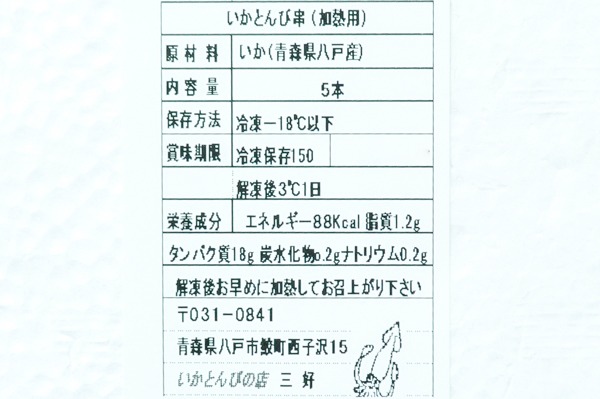 いかとんび串(加熱用)
原材料 いか(青森県八戸産)
内容量 5本
保存方法 冷凍-18℃以下
賞味期限 冷凍保存150
解凍後3℃1日
栄養成分 エネルギー88Kcal 脂質1.2g
タンパク質18g 炭水化物0.2gナトリウム0.2g
解凍後お早めに加熱してお召上がり下さい
〒031-0841
青森県八戸市鮫町西子沢15
いかとんびの店 三好